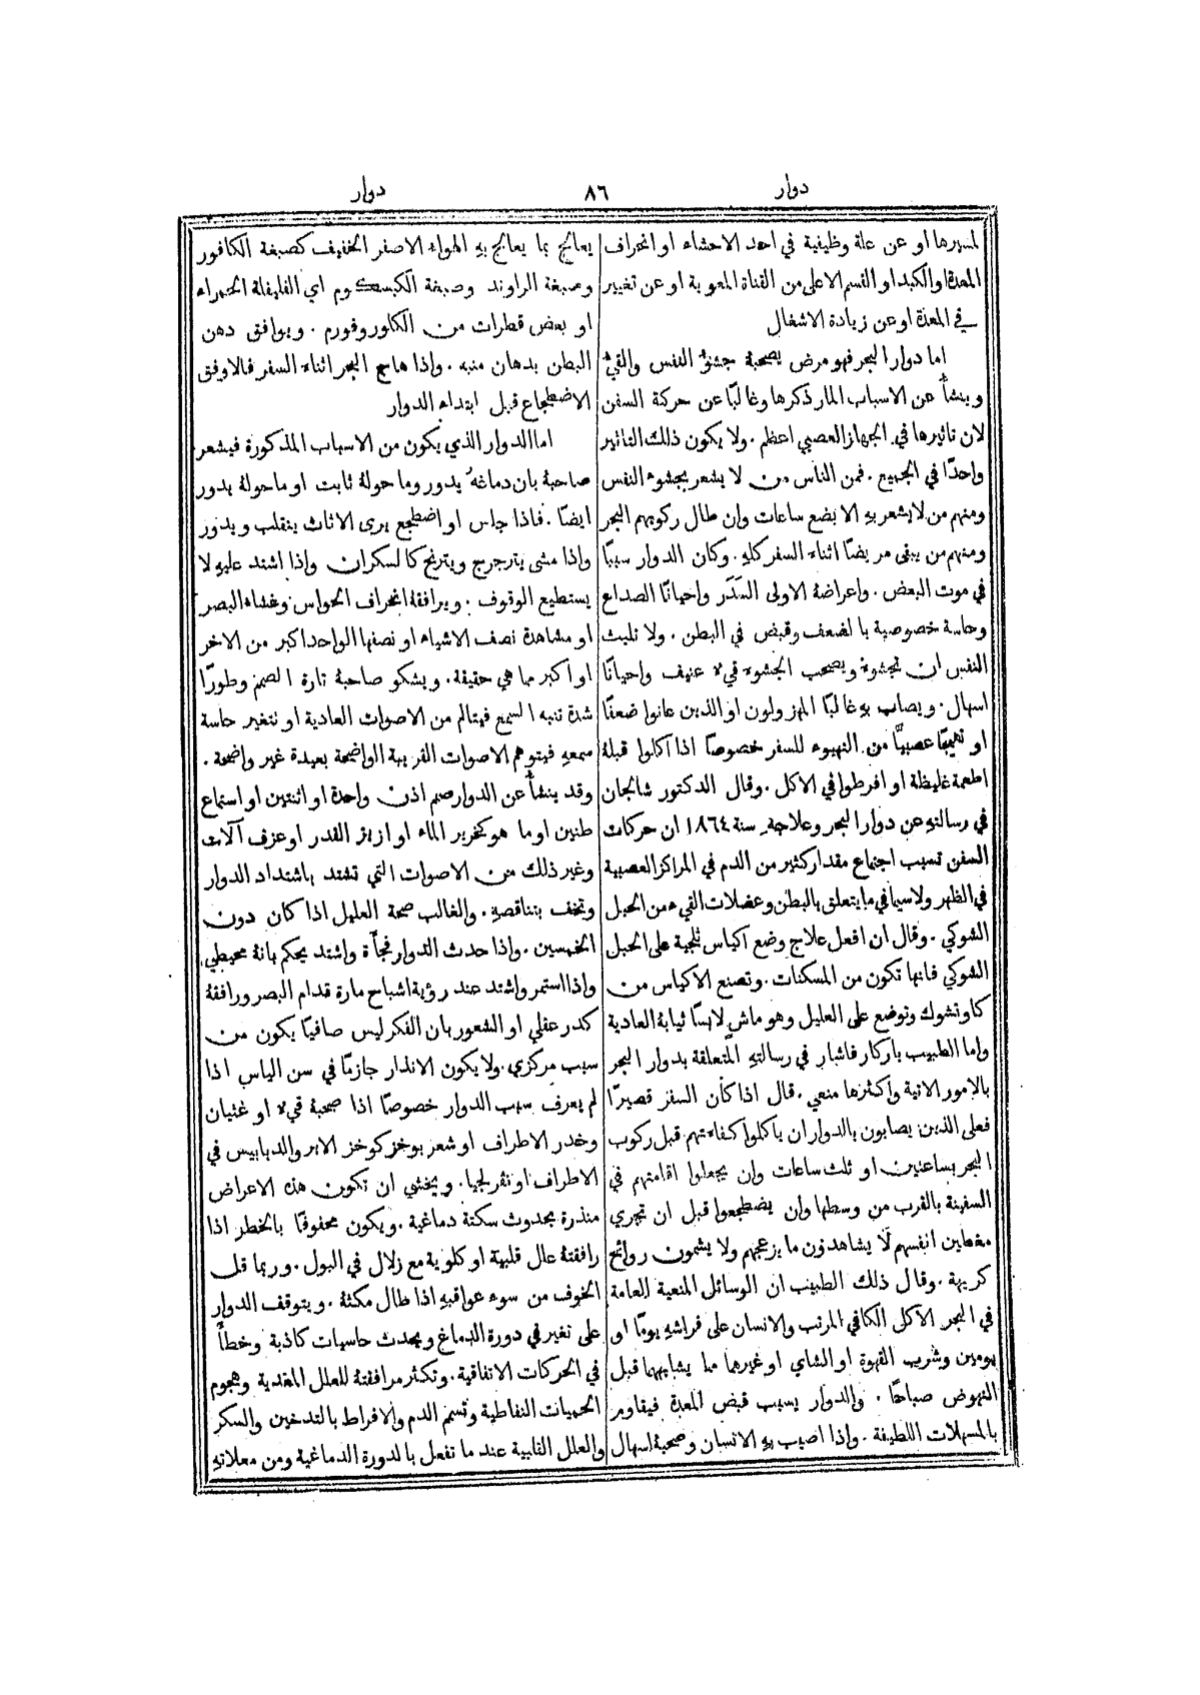 دوار
٨٦
دوار
لسيرها او عن علة وظيفية في احد الاحشاء او انحراف
المعدة او الكبد او القسم الاعلى من القناة المعوية او عن تغيير
في المعدة او عن زيادة الاشغال
اما دوار البحر فهو مرض يصحبة جشوء النفس والقيء
وينشأ عن الاسباب المار ذكرها وغالبًا عن حركة السفن
لان تاثيرها في الجهاز العصبي اعظم . ولا يكون ذلك التاثير
واحدًا في الجميع . فمن الناس من لا يشعر بجشوء النفس
ومنهم من لا يشعر بهِ الا بضع ساعات وان طال ركوبهم البحر
ومنهم من يبقى مريضًا اثناء السفر كلهِ . وكان الدوار سببًا
في موت البعض . واعراضة الاولى السَدَر واحيانًا الصداع
وحاسة خصوصية بالضعف وقبض في البطن . ولا تلبث
النفس ان تجشوء ويصحب الجشوء قيء عنيف واحيانًا
اسهال . ويصاب بهِ غالبًا المهزولون او الذين عانوا ضعفًا
او تهيجًا عصبيًّا من التهيوء للسفر خصوصًا اذا اكلوا قبلة
اطعمة غليظة او افرطوا في الاكل . وقال الدكتور شابجان
في رسالتهِ عن دوار البحر وعلاجهِ سنة ١٨٦٤ ان حركات
السفن تسبب اجتماع مقدار كثير من الدم في المراكز العصبية
في الظهر ولاسيما في ما يتعلق بالبطن وعضلات القيء من الحبل
الشوكي . وقال ان افعل علاج وضع اكياس ثلجية على الحبل
الشوكي فانها تكون من المسكنات . وتصنع الاكياس من
كاوتشوك وتوضع على العليل وهو ماشٍ لابسًا ثيابة العادية
واما الطبيب باركار فاشار في رسالتهِ المتعلقة بدوار البحر
بالامور الاتية واكثرها منعي . قال اذا كان السفر قصيرًا
فعلى الذين يصابون بالدوار ان ياكلوا كفاءتهم قبل ركوب
البحر بساعتين او ثلث ساعات وان يجعلوا اقامتهم في
السفينة بالقرب من وسطها وان يضطجعوا قبل ان تجري
مغطين انفسهم لئلا يشاهدون ما يزعجهم ولا يشمون روائح
كريهة . وقال ذلك الطبيب ان الوسائل المنعية العامة
في البحر الاكل الكافي المرتب والانسان على فراشهِ يومًا او
يومين وشرب القهوة او الشاي او غيرها مما يشابهها قبل
النهوض صباحًا . والدوار يسبب قبض المعدة فيقاوم
بالمسهلات اللطيفة . واذا اصيب بهِ الانسان وصحبة اسهال
يعالج بما يعالج بهِ الهواء الاصفر الخفيف كصبغة الكافور
وصبغة الراوند وصبغة الكبسكوم اي الفليفلة الحمراء
او بعض قطرات من الكلوروفورم . ويوافق دهن
البطن بدهان منبه . واذا هاج البحر اثناء السفر فالاوفق
الاضطجاع قبل ابتداء الدوار
اما الدوار الذي يكون من الاسباب المذكورة فيشعر
صاحبة بان دماغهُ يدور وما حولة ثابت او ما حولة يدور
ايضًا . فاذا جلس او اضطجع يرى الاثاث ينقلب ويدور
واذا مشى يترجرج ويترنح كالسكران واذا اشتد عليهِ لا
يستطيع الوقوف . ويرافقة انحراف الحواس وغشاء البصر
او مشاهدة نصف الاشياء او نصفها الواحد اكبر من الاخر
او اكبر مما هي حقيقة . ويشكو صاحبة تارة الصمم وطورًا
شدة تنبه السمع فيتالم من الاصوات العادية او تتغير حاسة
سمعهِ فيتوهم الاصوات القريبة الواضحة بعيدة غير واضحة .
وقد ينشأ عن الدوار صمم اذن واحدة او اثنتين او استماع
طنين او ما هو كخرير الماء او ازيز القدر او عزف آلات
وغير ذلك من الاصوات التي تشتد باشتداد الدوار
وتخف بتناقصهِ . والغالب صحة العليل اذا كان دون
الخمسين . واذا حدث الدوار فجأة واشتد يحكم بانة محيطي
واذا استمر واشتد عند رؤية اشباح مارة قدام البصر ورافقة
كدر عقلي او الشعور بان الفكر ليس صافيًا يكون من
سبب مركزي . ولا يكون الانذار جازمًا في سن الياس اذا
لم يعرف سبب الدوار خصوصًا اذا صحبة قيء او غثيان
وخدر الاطراف او شعر بوخز كوخز الابر والدبابيس في
الاطراف او نفرلجيا . ويخشى ان تكون هذه الاعراض
منذرة بحدوث سكتة دماغية . ويكون محفوفًا بالخطر اذا
رافقتة علل قلبية او كلوية مع زلال في البول . وربما قل
الخوف من سوء عواقبهِ اذا طال مكثة . ويتوقف الدوار
على تغير في دورة الدماغ ويحدث حاسيات كاذبة وخطأً
في الحركات الاتفاقية . وتكثر مرافقتة للعلل المعدية وهجوم
الحميات النفاطية وتسمم الدم والافراط بالتدخين والسكر
والعلل القلبية عند ما تفعل بالدورة الدماغية ومن معلاتهِ